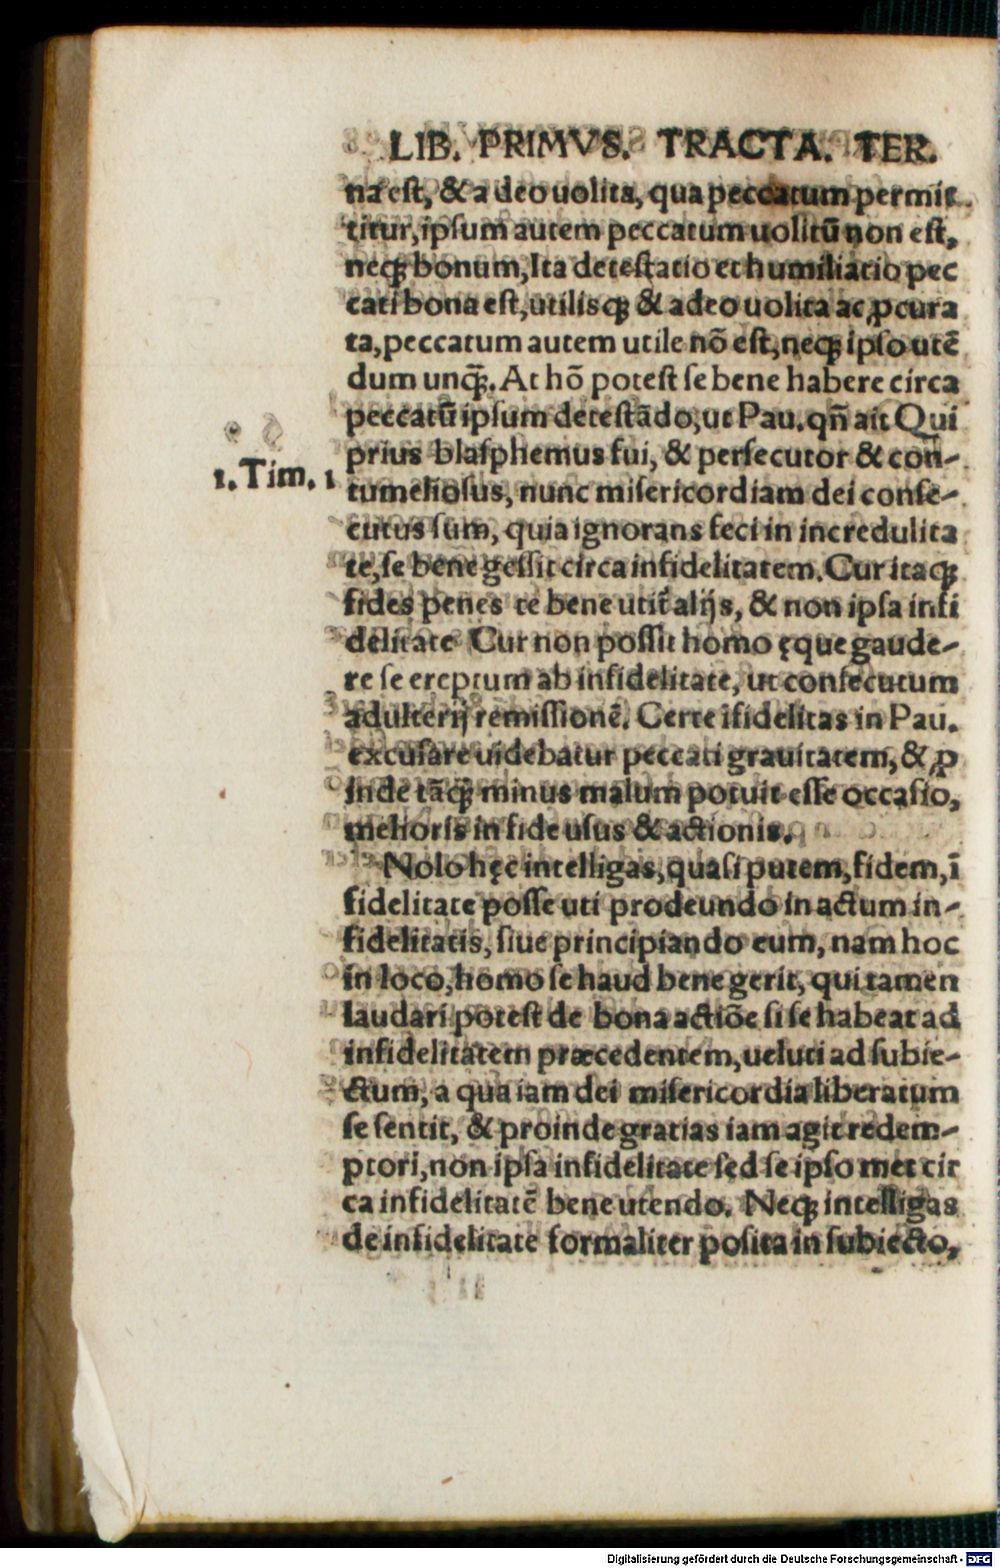 LIB. PRIMVS. TRACTA. TER.
na est, & adeo uolita, qua peccatum permit
titur, ipsum autem peccatum uolitū non est,
neq; bonum, Ita detestatio et humiliatio pec
cati bona est, utilisq; & adeo uolita ac ꝓcura
ta, peccatum autem utile nō est, neq; ipso utē
dum unq̃. At hō potest se bene habere circa
peccatū ipsum detestādo, ut Pau. qn̄ ait Qui
prius blasphemus fui, & persecutor & con-
1. Tim. 1
tumeliosus, nunc misericordiam dei conse-
cutus sum, quia ignorans feci in incredulita
te, se bene gessit circa infidelitatem. Cur itaq;
fides penes te bene utit᷑ alijs, & non ipsa infi
delitate Cur non possit homo ęque gaude-
re se ereptum ab infidelitate, ut consecutum
adulterij remissionē. Certe ifidelitas in Pau.
excusare uidebatur peccati grauitatem, & ꝓ
inde tāq; minus malum potuit esse occasio,
melioris in fide usus & actionis.
Nolo hęc intelligas, quasi putem, fidem, ī
fidelitate posse uti prodeundo in actum in-
fidelitatis, siue principiando eum, nam hoc
in loco, homo se haud bene gerit, qui tamen
laudari potest de bona actiōe si se habeat ad
infidelitatem præcedentem, ueluti ad subie-
ctum, a qua iam dei misericordia liberatum
se sentit, & proinde gratias iam agit redem-
ptori, non ipsa infidelitate sed se ipso met cir
ca infidelitatē bene utendo. Neq; intelligas
de infidelitate formaliter posita in subiecto,
Digitalisierung gefördert durch die Deutsche Forschungsgemeinschaft - DFG